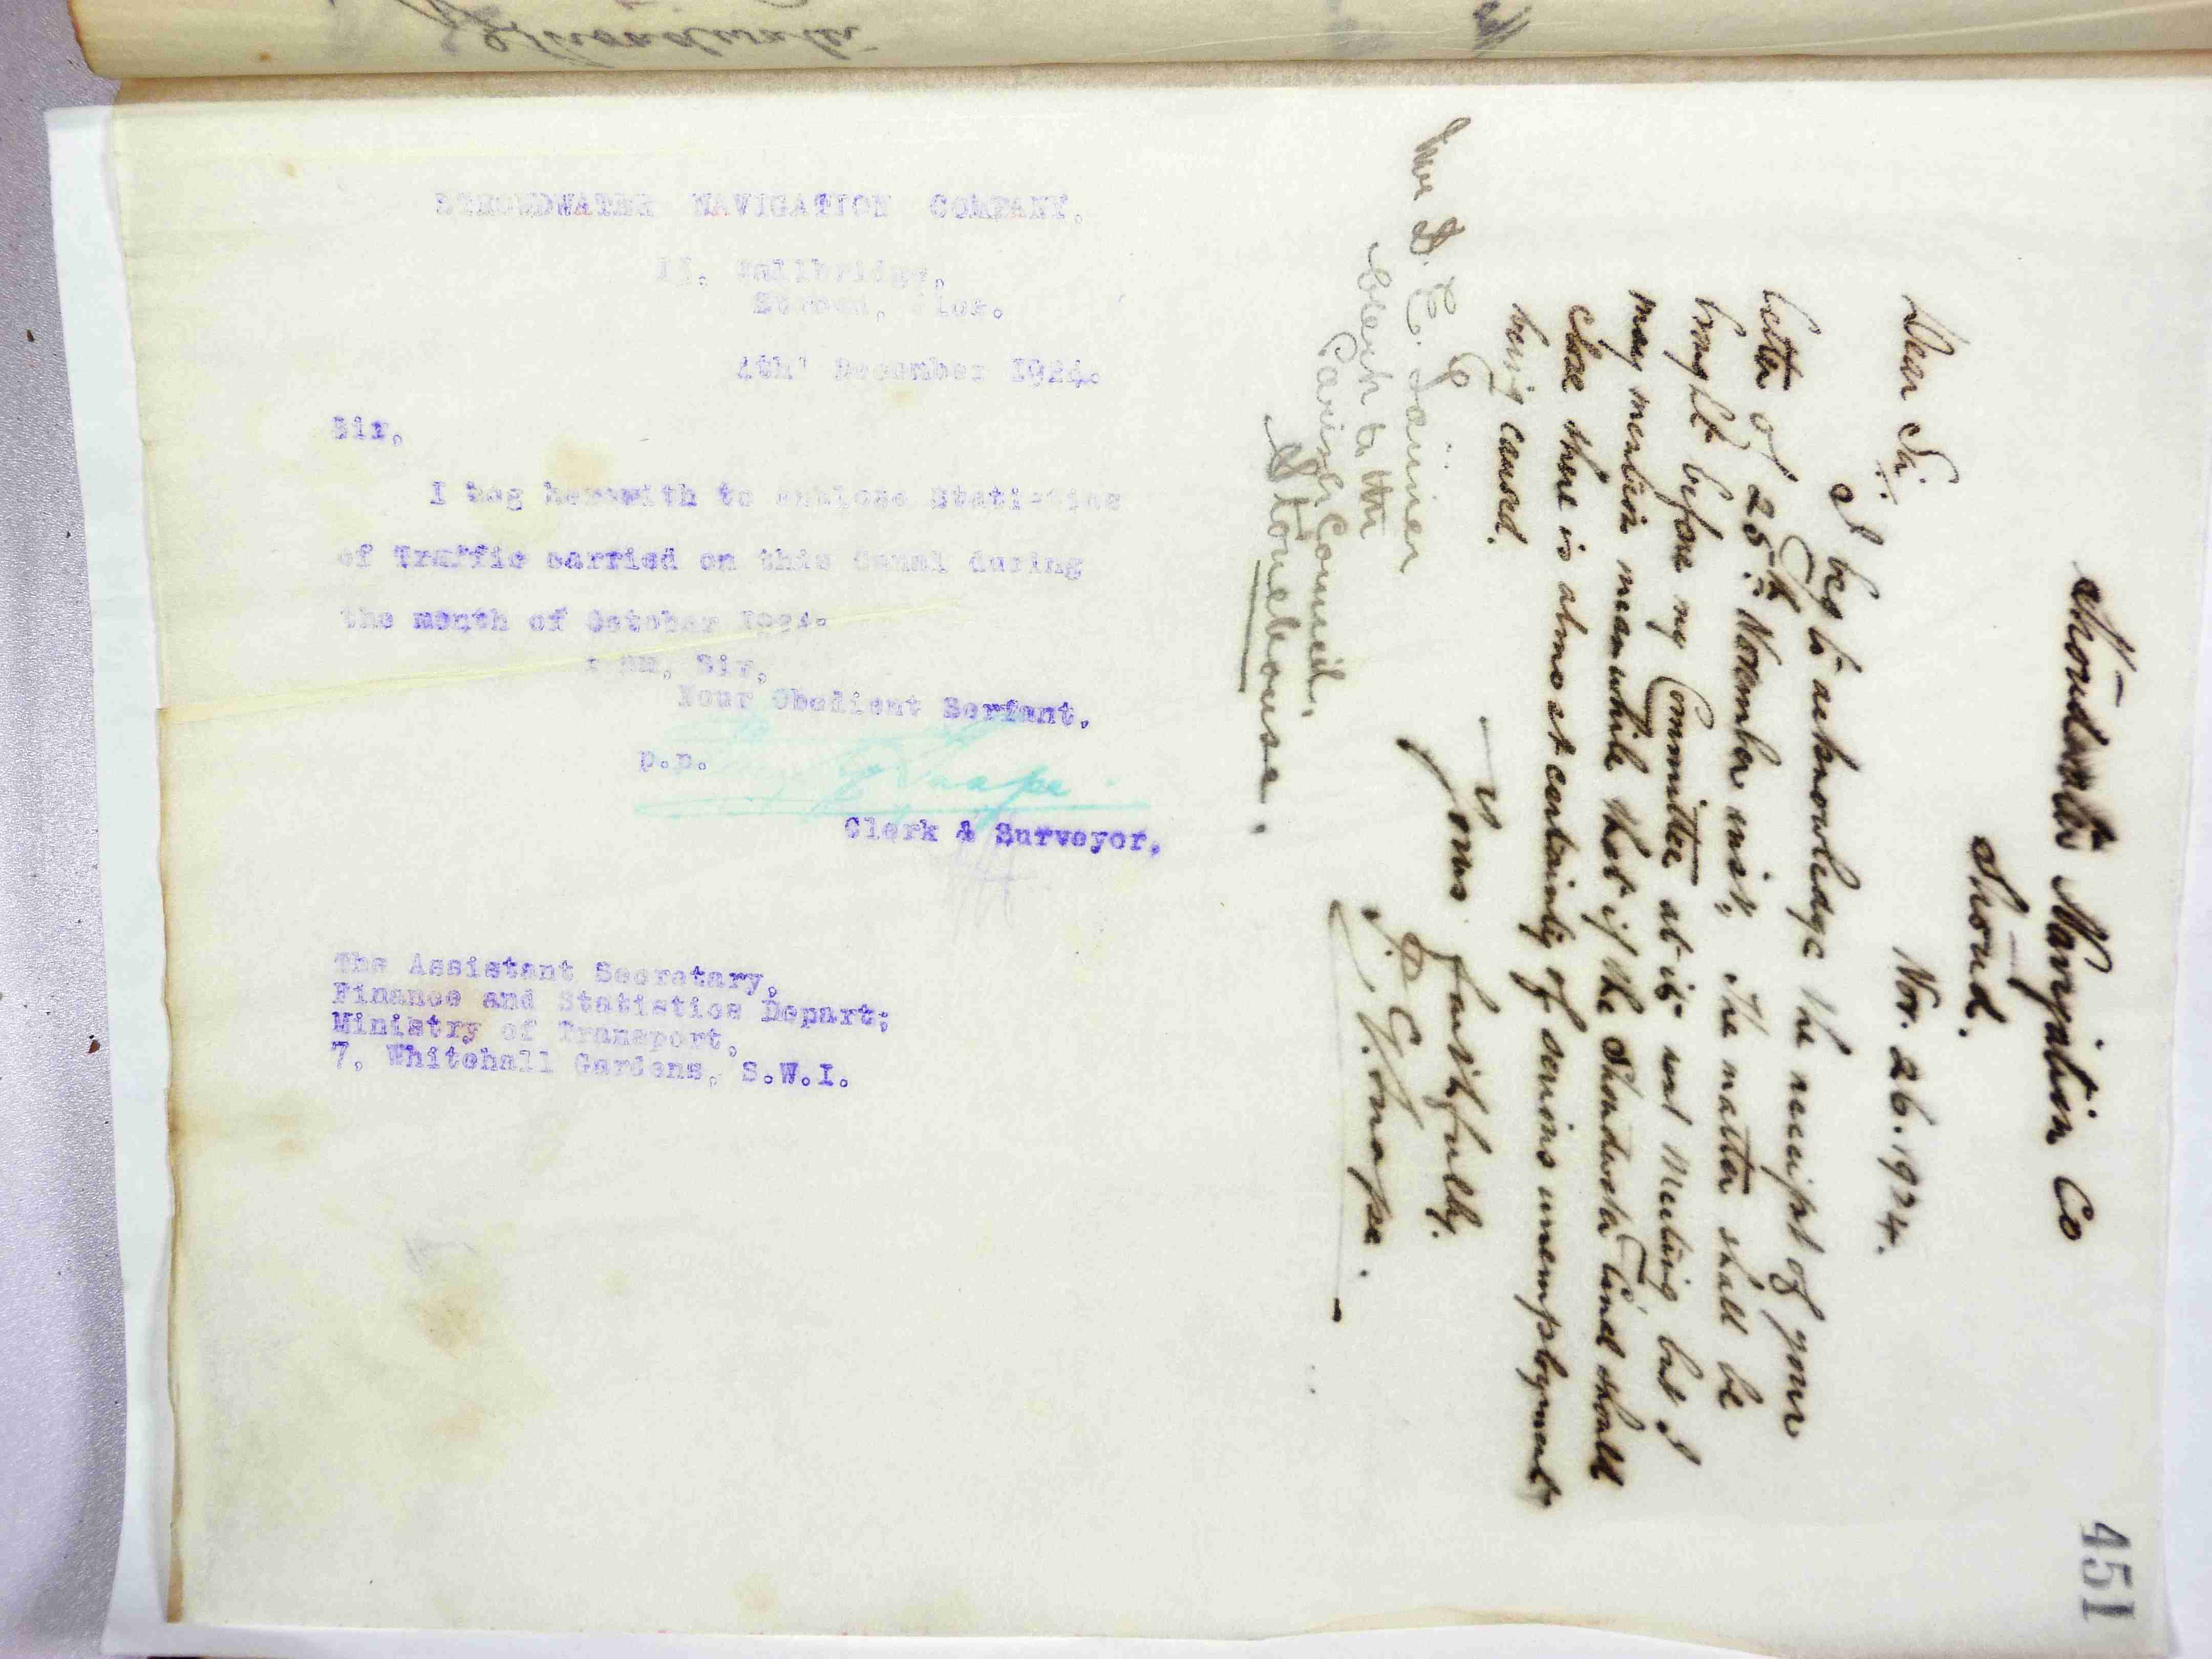 451
Stroudwater Navigation Co
Stroud.
Nov. 26. 1924.
Dear Sir.
I beg to acknowledge the receipt of your
letter of 25th November inst. The matter shall be
brought before my Committee at its next Meeting but I
may mention meanwhile that if the Stroudwater Canal should
close there is almost certainty of serious unemployment
being caused.
Yours faithfully.
P. C. Snape.
Clerk to the
Parish Council.
Stonehouse.
STROUDWATER NAVIGATION COMPANY.
Wallbridge,
Stroud, Glos.
4th' December 1924.
Sir,
I beg herewith to enclose Statistics
of Traffic carried on this Canal during
the month of October 1924.
I am, Sir,
Your Obedient Servant.
p.p. Snape
Clerk & Surveyor.
The Assistant Secretary,
Finance and Statistics Depart;
Ministry of Transport,
7, Whitehall Gardens, S.W.I.